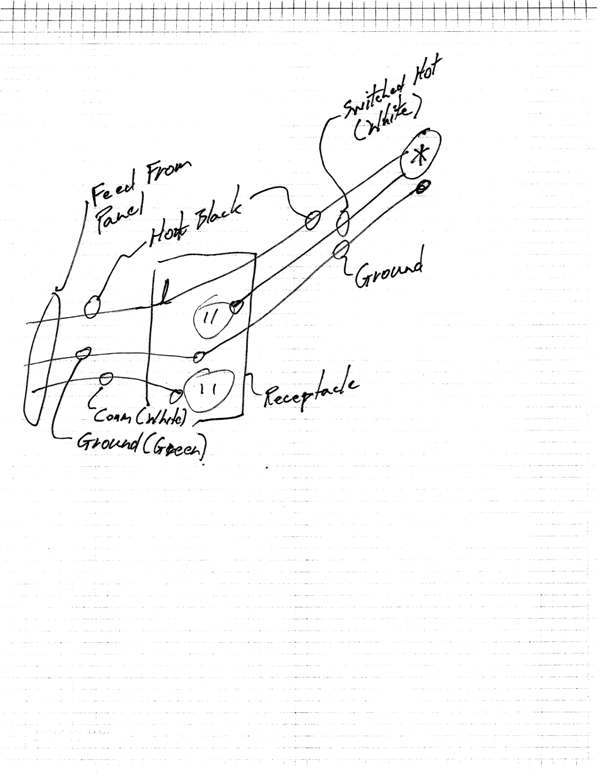 Switched Hot
(White)
Feed From
Panel
Hot Black
Ground
Receptacle
Comm (White)
Ground (Green)